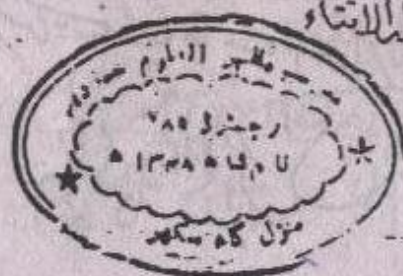 الافتاء
مظہر العلوم
رجسٹرڈ ۷۸۵
۱۳۳۸ ھ
منزل گاہ سکھر